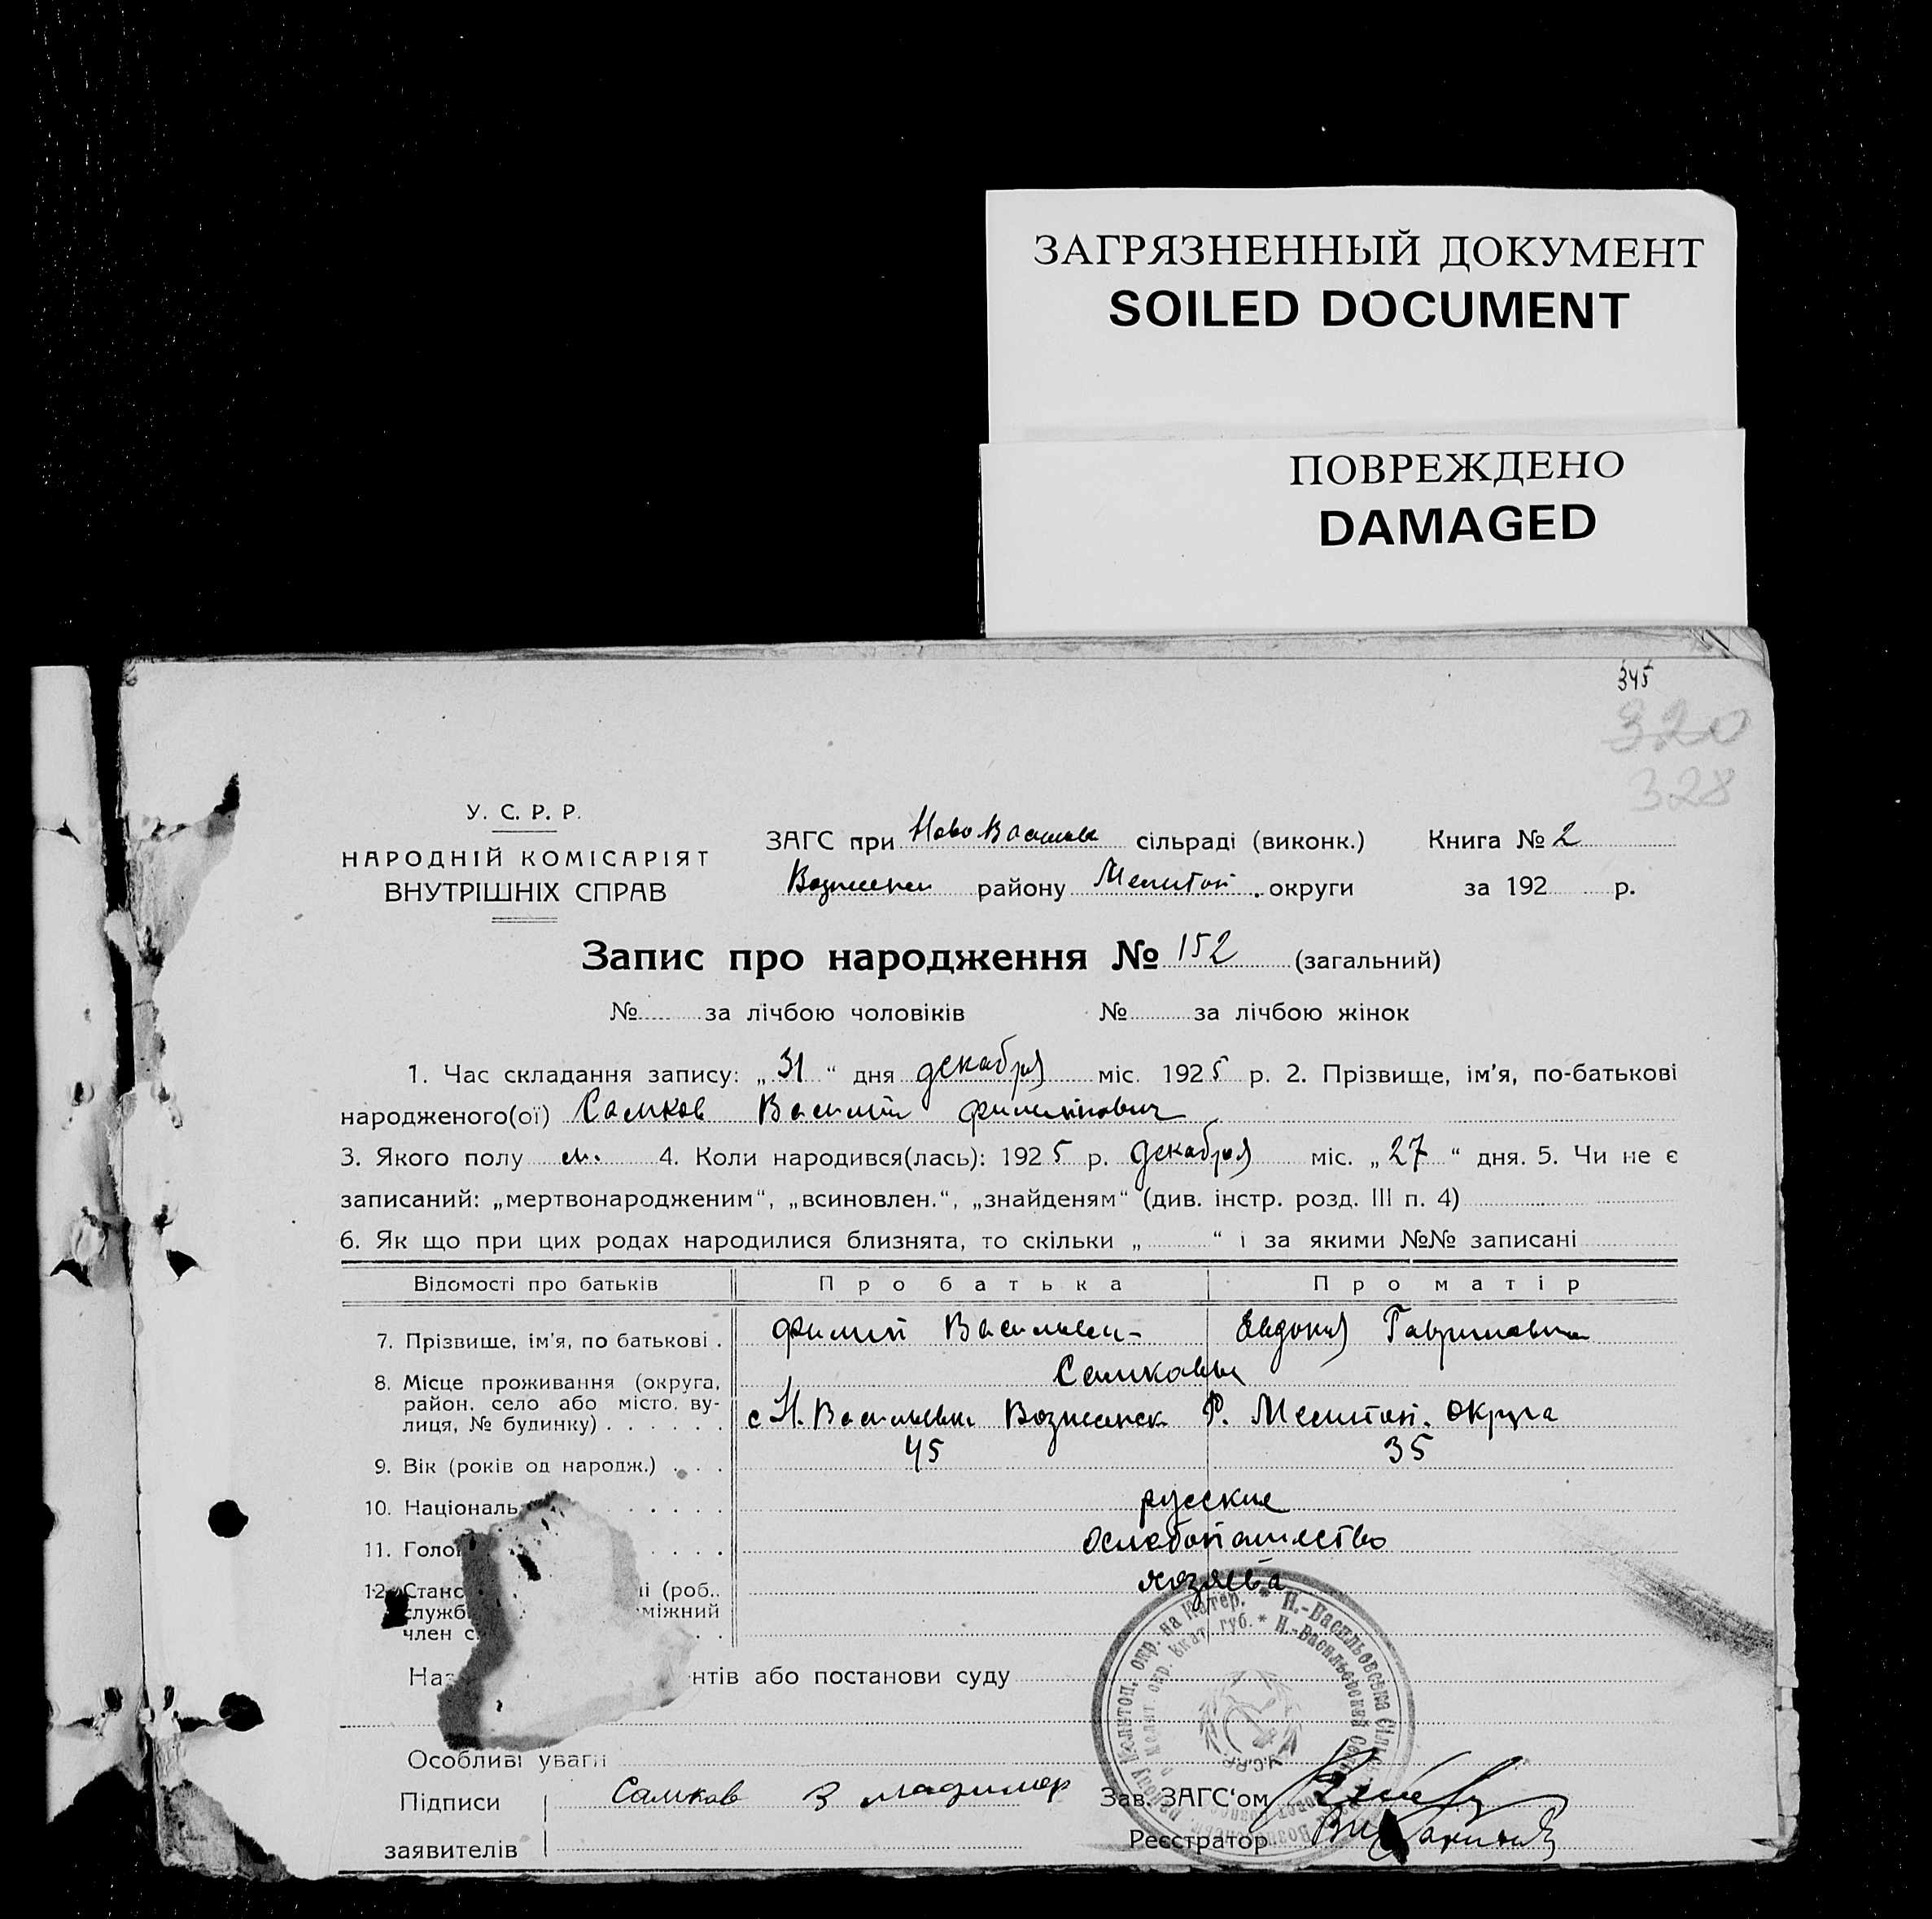 ЗАГРЯЗНЕННЫЙ ДОКУМЕНТ
SOILED DOCUMENT
ПОВРЕЖДЕНО
DAMAGED
345
320
328
У. С. Р. Р.
НАРОДНІЙ КОМІСАРІЯТ
ВНУТРІШНІХ СПРАВ
ЗАГС при Ново Васильев сільраді (виконк.) Книга № 2
Вознесен району Мелитоп. округи за 192 р.
Запис про народження № 152 (загальний)
№ за лічбою чоловіків № за лічбою жінок
1. Час складання запису: „31“ дня декабря міс. 1925 р. 2. Прізвище, ім'я, по-батькові
народженого(ої) Самков Василий Филиппович
3. Якого полу м. 4. Коли народився(лась): 1925 р. декабря міс. „27“ дня. 5. Чи не є
записаний: „мертвонародженим“, „всиновлен.“, „знайденям“ (див. інстр. розд. III п. 4)
6. Як що при цих родах народилися близнята, то скільки „ “ і за якими №№ записані
Відомості про батьків Про батька Про матір
7. Прізвище, ім'я, по батькові . Филип Васильев- Евдокия Гавриловна
Самковы
8. Місце проживання (округа,
район, село або місто, ву-
лиця, № будинку) . . . . . . с Н. Васильевка Вознесенск Р. Мелитоп. округа
9. Вік (років од народж.) . . . 45 35
10. Національ . . . . . русские
11. Голо . . . . хлебопашество
12. Стано і (роб., хозяева
служб міжний
член с . .
Наз нтів або постанови суду
Особливі уваги
Підписи Самков Владимир Зав. ЗАГС'ом
заявителів Реєстратор